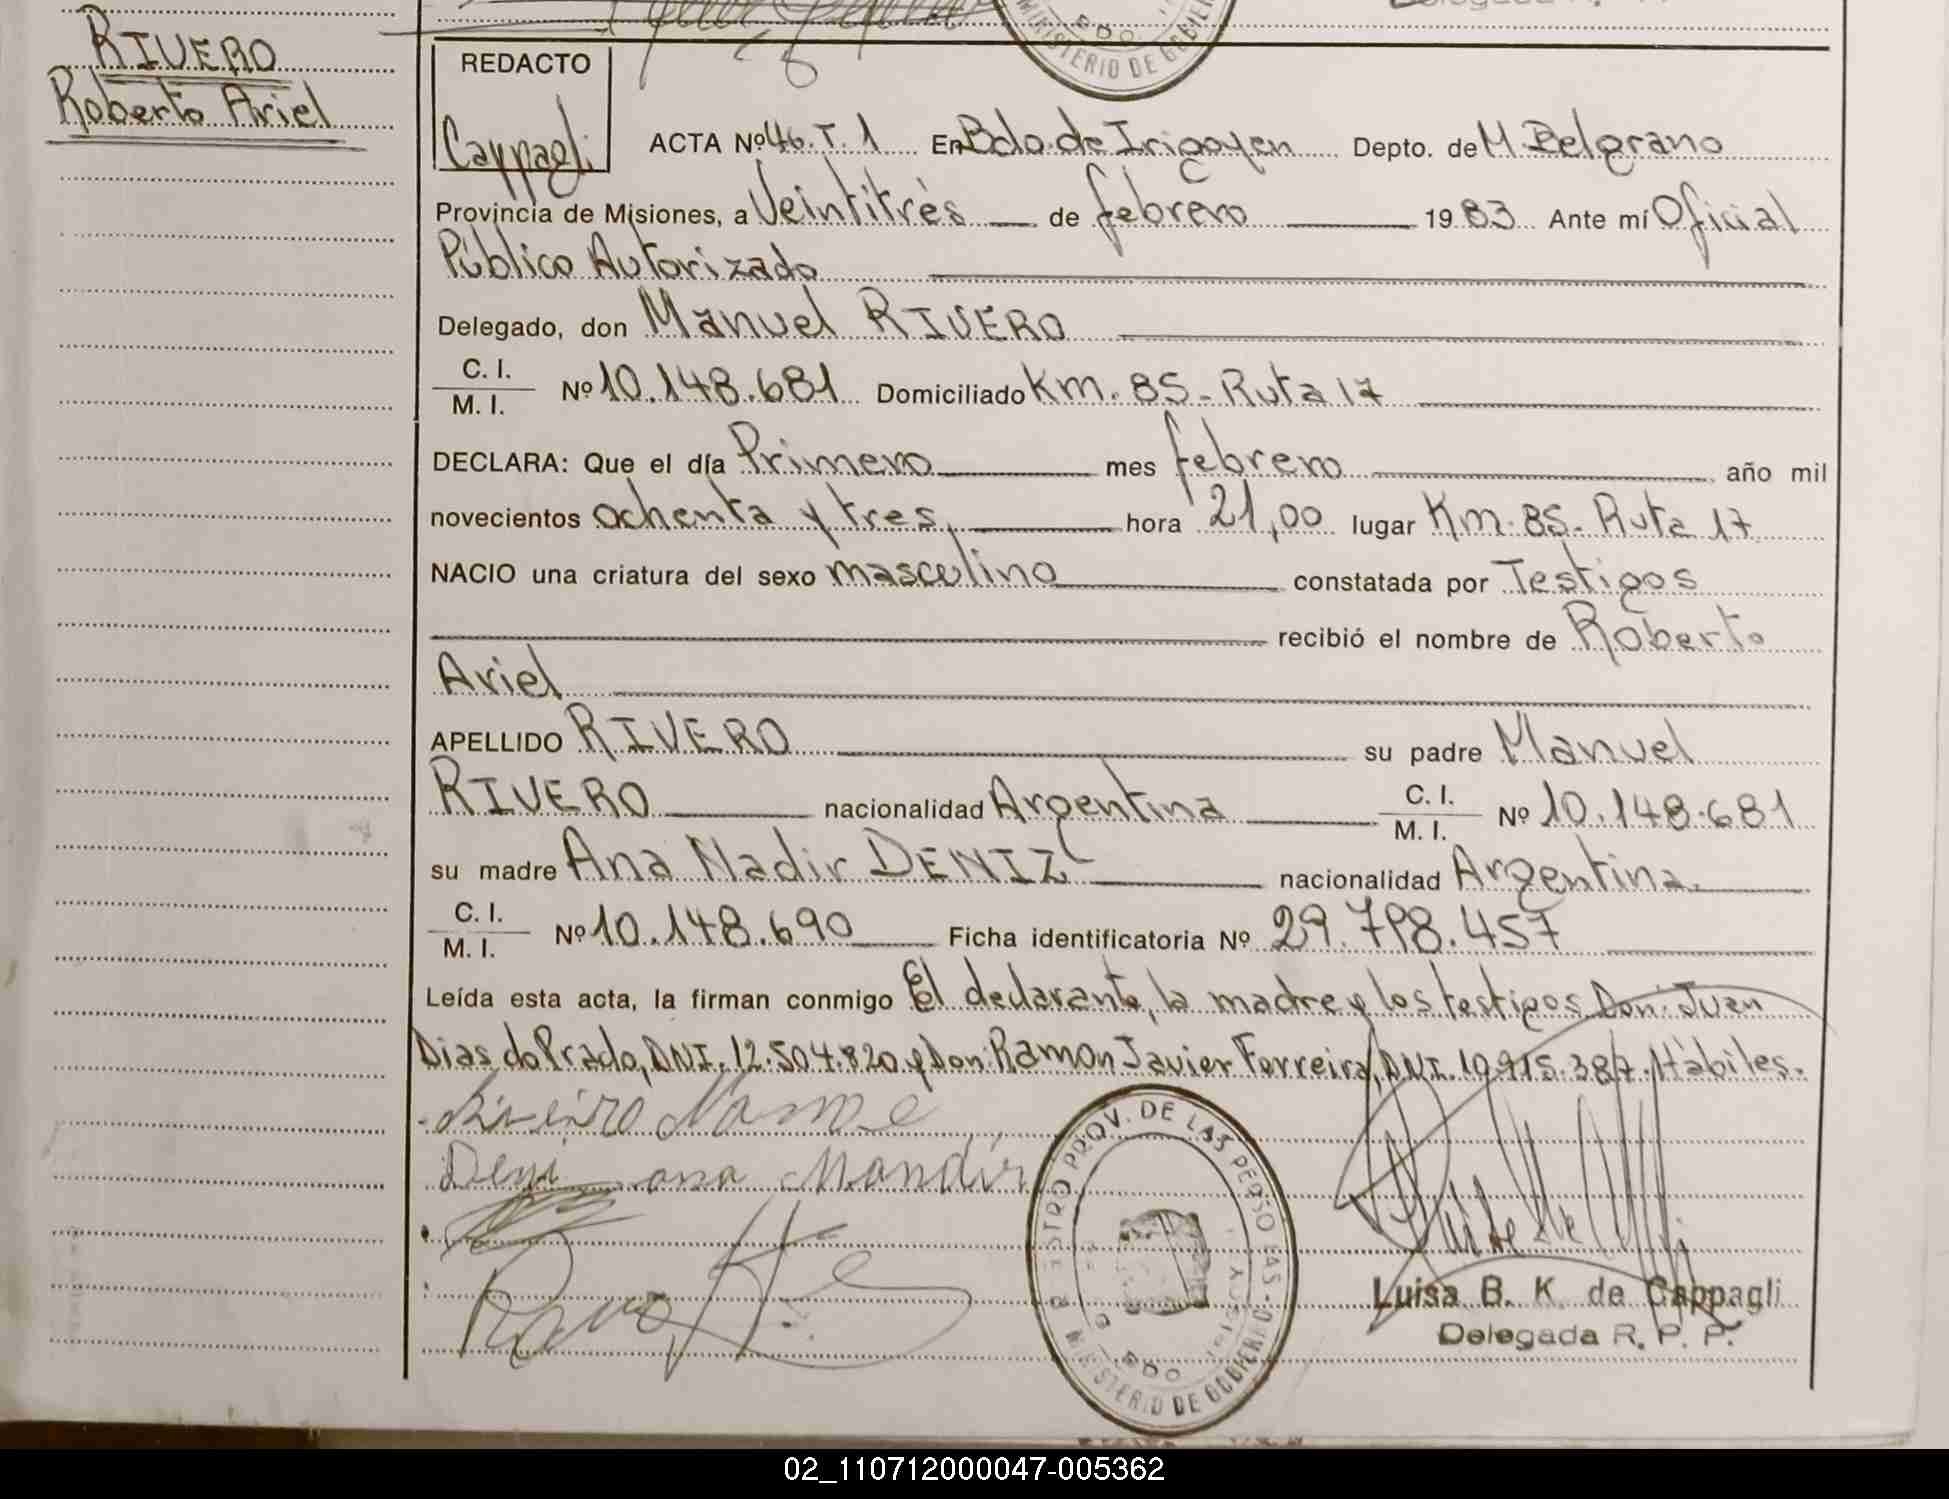 RIVERO
Roberto Ariel
REDACTO
Cappagli
ACTA Nº 46. T. 1 En Bdo. de Irigoyen Depto. de M. Belgrano
Provincia de Misiones, a Veintitrés de febrero 1983 Ante mí Oficial
Público Autorizado
Delegado, don Manuel RIVERO
C. I.
M. I.
Nº 10.148.681 Domiciliado Km. 85 - Ruta 17
DECLARA: Que el día Primero mes febrero año mil
novecientos ochenta y tres, hora 21,00 lugar Km. 85 - Ruta 17
NACIO una criatura del sexo masculino constatada por Testigos
recibió el nombre de Roberto
Ariel
APELLIDO RIVERO su padre Manuel
RIVERO nacionalidad Argentina C. I.
M. I. Nº 10.148.681
su madre Ana Nadir DENIZ nacionalidad Argentina.
C. I.
M. I.
Nº 10.148.690 Ficha identificatoria Nº 29.798.457
Leída esta acta, la firman conmigo El declarante, la madre y los testigos Don: Juan
Dias do Prado, DNI. 12.504.820 y Don: Ramon Javier Ferreira, DNI. 10.915.387. Hábiles.
Deni ana Mandir
PROV. DE LAS PERSO
MINISTERIO DE GOBIERNO
Luisa B. K. de Cappagli
Delegada R. P. P.
MINISTERIO DE GOBIER
02_110712000047-005362